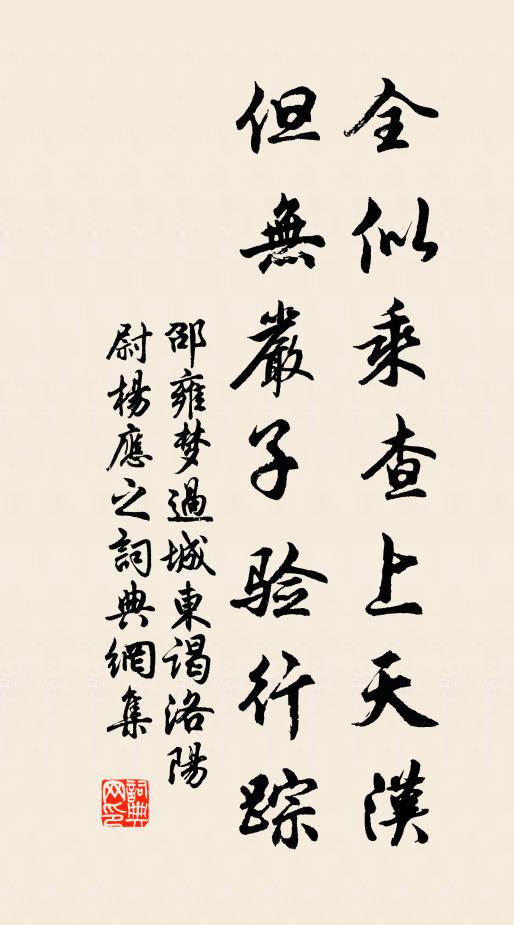 全似乘查上天漢
但無嚴子验行踪
邵雍梦過城東謁洛陽
尉楊應之詞典網集
詞典网印